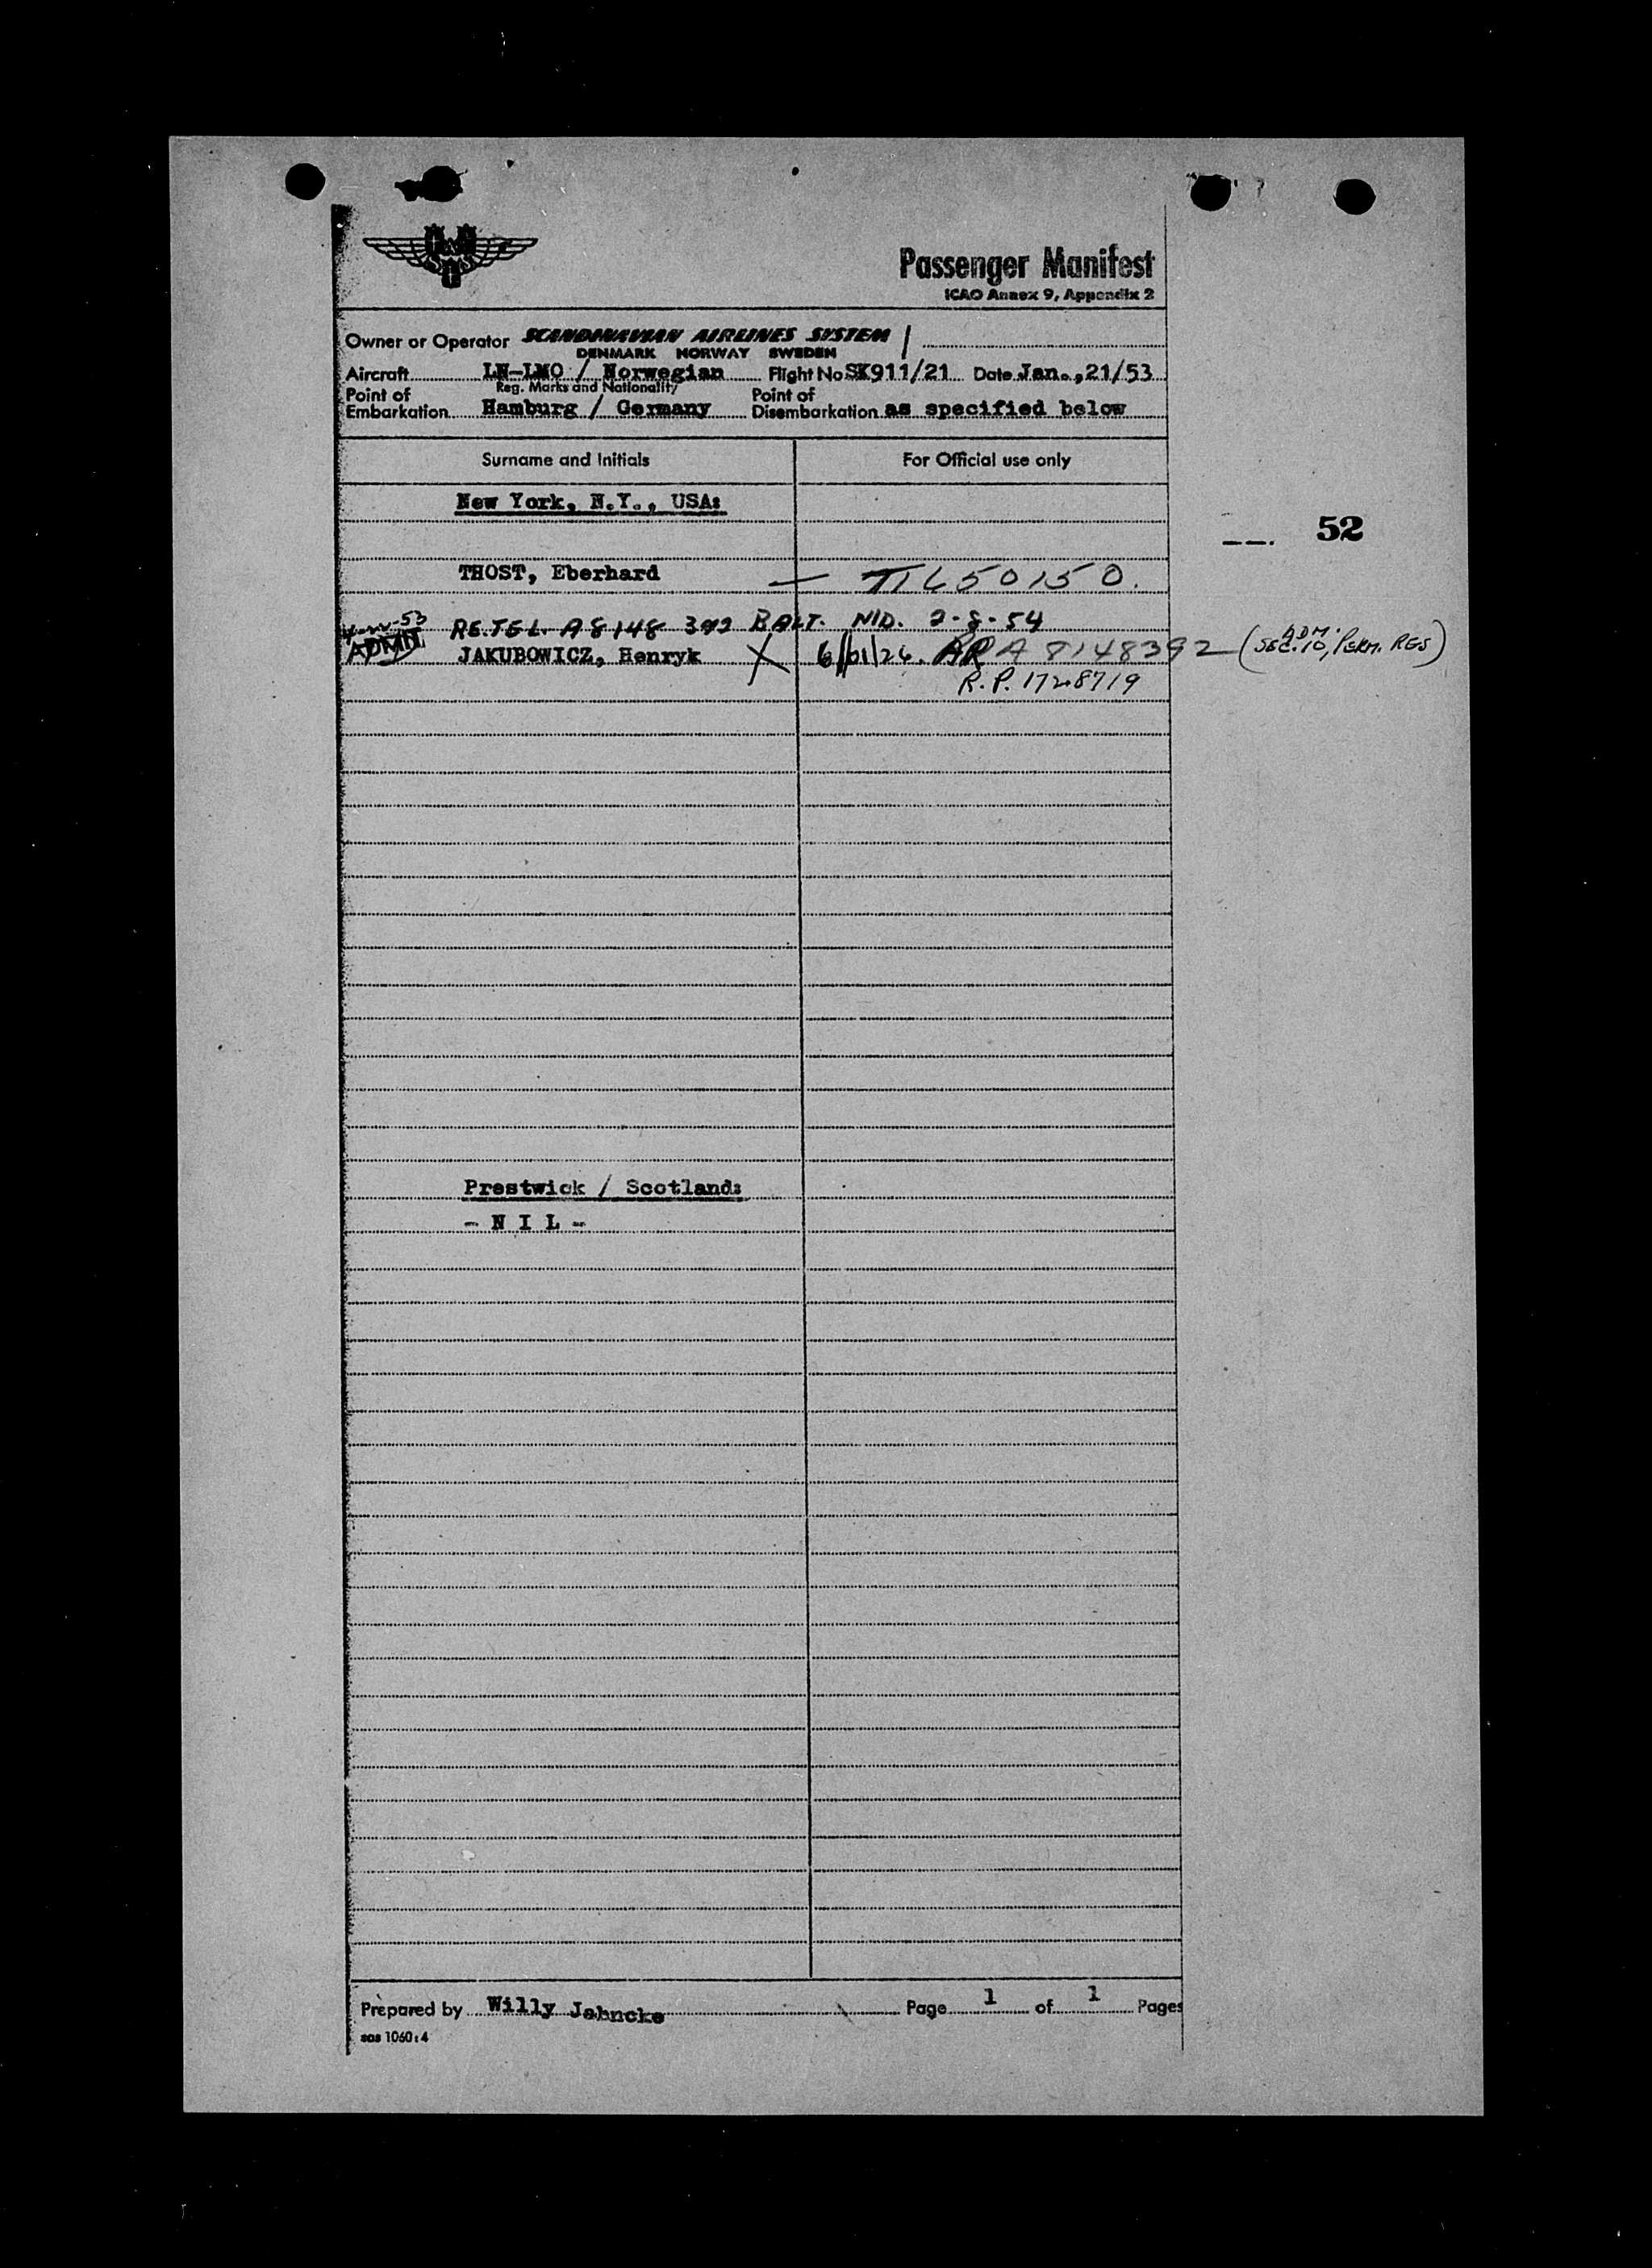 Passenger Manifest
ICAO Annex 9, Appendix 2
Owner or Operator SCANDINAVIAN AIRLINES SYSTEM
DENMARK NORWAY SWEDEN
Aircraft LN-LMO / Norwegian Flight No SK911/21 Date Jan.,21/53
Reg. Marks and Nationality
Point of Embarkation Hamburg / Germany Point of Disembarkation as specified below
Surname and Initials For Official use only
New York, N.Y., USA:
52
THOST, Eberhard — T1650150.
RE.TEL. A8148 392 BALT. N/D. 2-8-54
ADMIT
JAKUBOWICZ, Henryk X 6/61/26. AR A 8148392 (ADM. SEC. 10, PERM. REGS)
R.P. 1728719
Prestwick / Scotland:
- N I L -
Prepared by Willy Jahncke Page 1 of 1 Pages
sas 1060:4